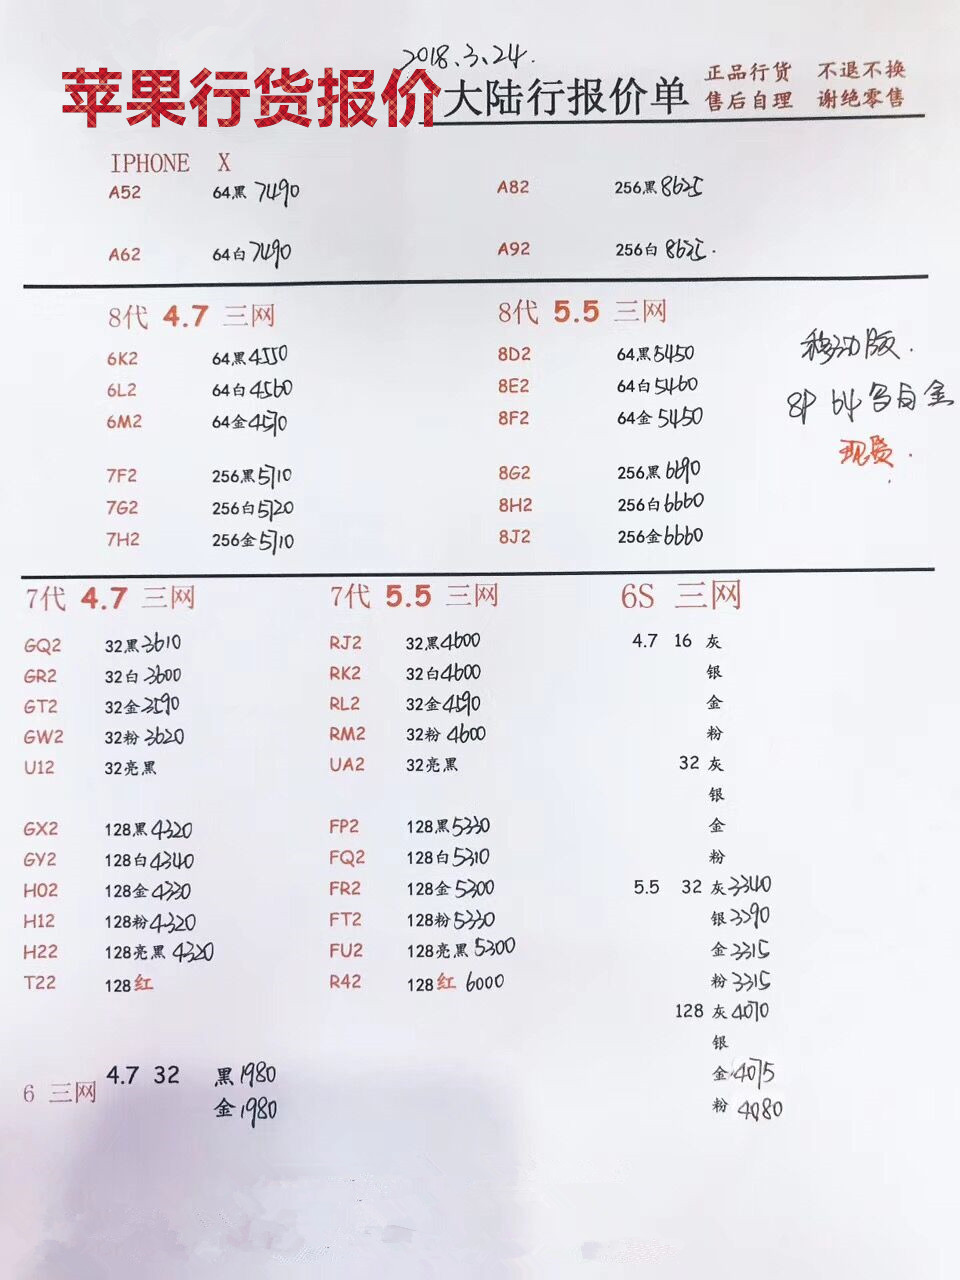 2018.3.24.
苹果行货报价 大陆行报价单 正品行货 不退不换
售后自理 谢绝零售
IPHONE X
A52 64黑 7490 A82 256黑 8625
A62 64白 7490 A92 256白 8625.
8代 4.7 三网 8代 5.5 三网
6K2 64黑 4550 8D2 64黑 5450
6L2 64白 4560 8E2 64白 5460
6M2 64金 4570 8F2 64金 5450
移动版.
8P 64 白金
现货.
7F2 256黑 5710 8G2 256黑 6690
7G2 256白 5720 8H2 256白 6660
7H2 256金 5710 8J2 256金 6660
7代 4.7 三网 7代 5.5 三网 6S 三网
GQ2 32黑 3610 RJ2 32黑 4600 4.7 16 灰
GR2 32白 3600 RK2 32白 4600 银
GT2 32金 3590 RL2 32金 4590 金
GW2 32粉 3620 RM2 32粉 4600 粉
U12 32亮黑 UA2 32亮黑 32 灰
银
GX2 128黑 4320 FP2 128黑 5330 金
GY2 128白 4340 FQ2 128白 5310 粉
H02 128金 4330 FR2 128金 5300 5.5 32 灰 3340
H12 128粉 4320 FT2 128粉 5330 银 3290
H22 128亮黑 4320 FU2 128亮黑 5300 金 3315
T22 128红 R42 128红 6000 粉 3315
128 灰 4070
银
6 三网 4.7 32 黑 1980 金 4075
金 1980 粉 4080